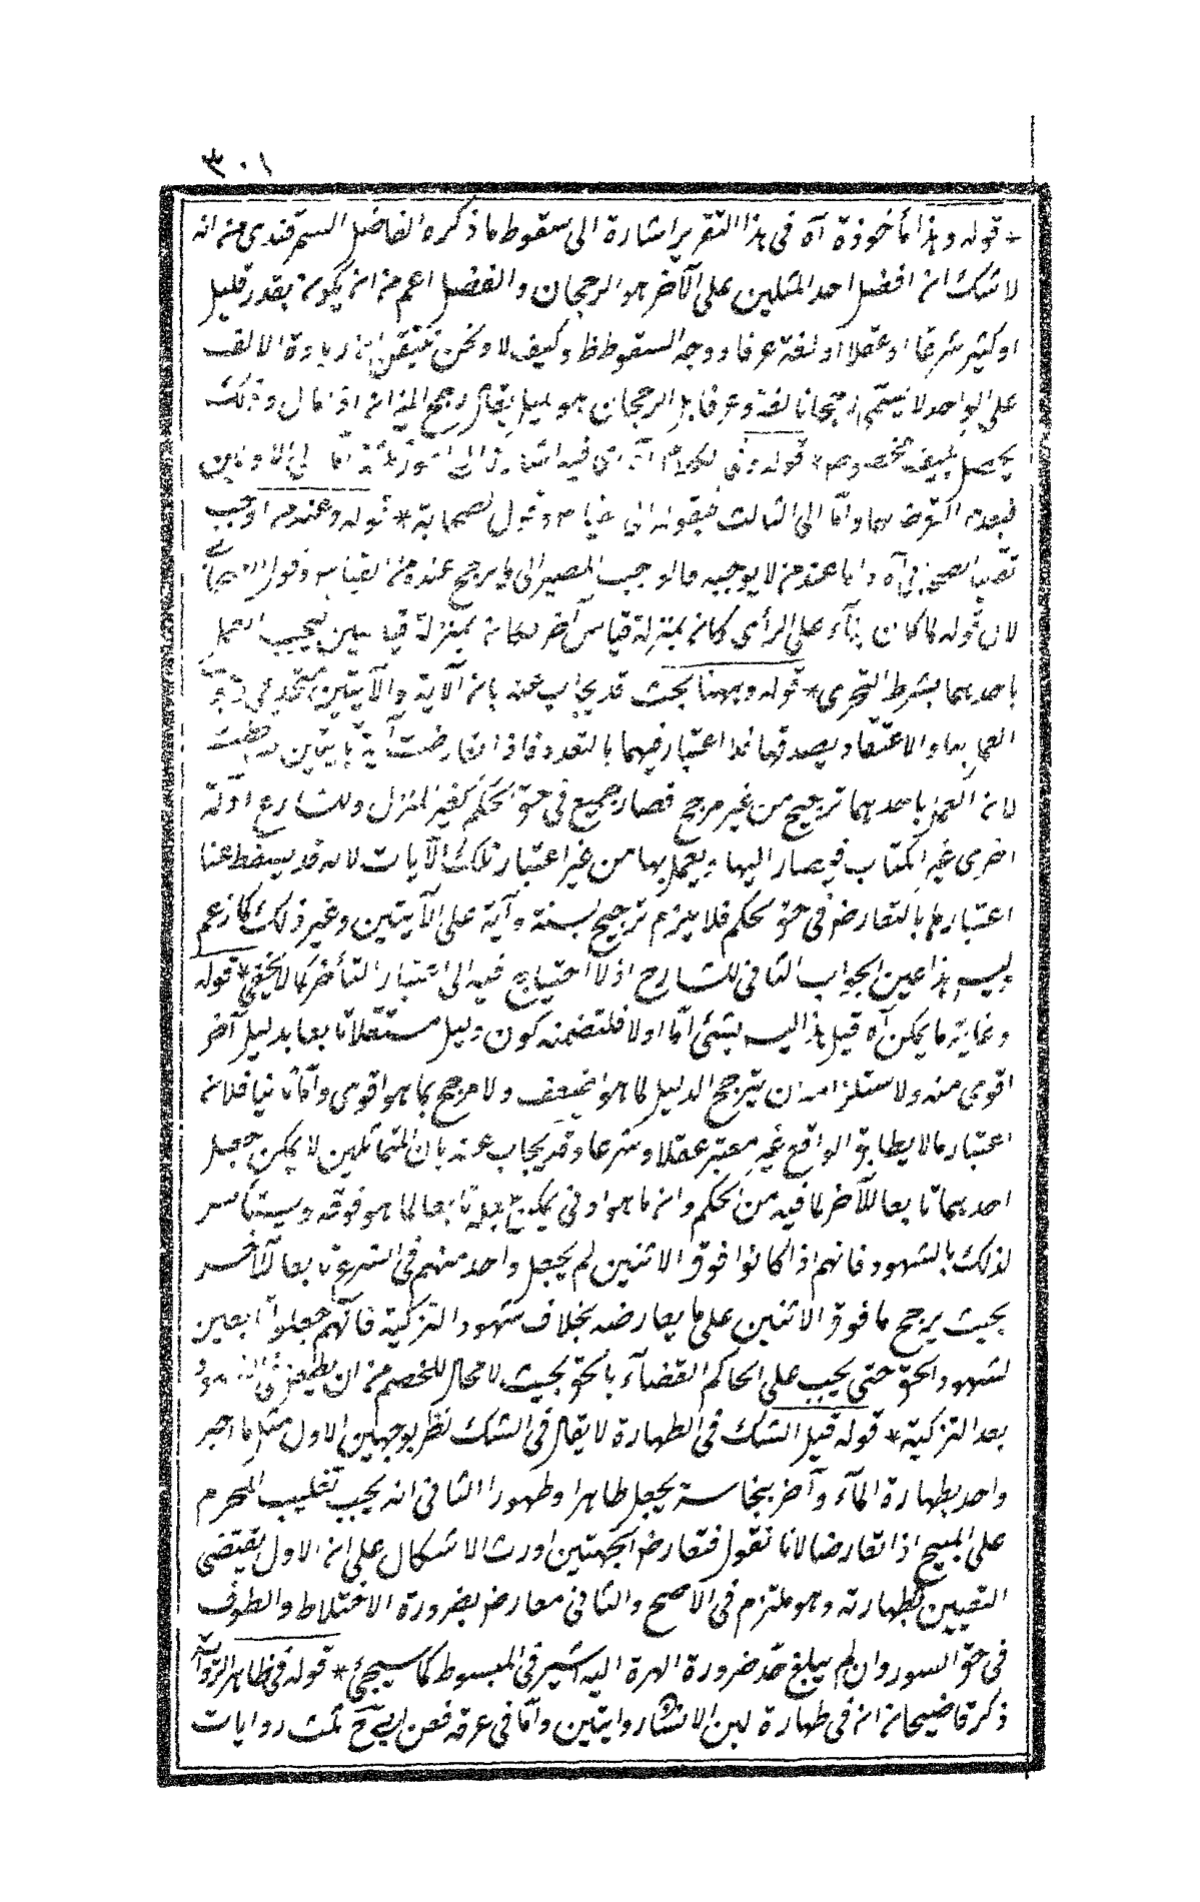 ٣٠١
* قوله وهذا مأخوذة آه فى هذا التقرير اشارة الى سقوط ما ذكره الفاضل السمرقندى من انه
لا شك ان افضل احد المثلين على الآخر هو الرجحان والفضل اعم من ان يكون بقدر قليل
او كثير شرعا او عقلا او لغة عرفا ووجه السقوط ظ وكيف لا ونحن نتيقن ان زيادة الالف
على الواحد لا يسمى رجحانا لغة وعرفا بل الرجحان هو ميل يقال رجح الميزان اذا مال وذلك
يحصل مخصوص * قوله وفى الكلام آه اى فيه اشارة الى امور ثلثة اما الى الاولين
فبعدم التعرض بهما واما الى الثالث فبقوله الى القياس وقول الصحابة * قوله وعند من اوجب
تقليد الصحابى آه واما عند من لا يوجبه فالواجب المصير الى ما يرجح عنده من القياس وقول الصحابى
لان قوله لما كان بناء على الرأى كان بمنزلة قياس آخر فكان بمنزلة قياسين فيجب العمل
باحدهما بشرط التحرى * قوله وههنا بحث قد يجاب عنه بان الآية والآيتين
العمل بهما والاعتقاد بصدقهما فلا اعتبار فيهما بالتعدد فاذا تعارضت آية بآيتين سقطت
لان العمل باحدهما ترجيح من غير مرجح فصار جميع فى حق الحكم كغير المنزل وللشارع ادلة
اخرى غير الكتاب فيصار اليها ويعمل بها من غير اعتبار تلك الآيات لانه قد يسقط عنا
اعتبارها بالتعارض فى حق الحكم فلا يلزم ترجيح السنة وآية على الآيتين وغير ذلك كما زعم
وليس هذا عين الجواب الثانى للشارح اذ لا احتياج فيه الى اعتبار التأخر كما لا يخفى * قوله
وغاية ما يمكن آه قيل هذا ليس بشئ اما اولا فلتضمنه كون دليل مستقلا تابعا بدليل آخر
اقوى منه ولاستلزامه ان يترجح الدليل لما هو اضعف ولا مرجح بما هو اقوى واما ثانيا فلان
اعتبار ما لا يطابق الواقع غير معتبر عقلا وشرعا وقد يجاب عنه بان المتماثلين لا يمكن جعل
احدهما تابعا للآخر لما فيه من الحكم وان ما هو ادنى يمكن جعله تابعا لما هو فوقه ويستأنس
لذلك بالشهود فانهم اذا كانوا فوق الاثنين لم يجعل واحد منهم فى الشرع تابعا للآخر
بحيث يرجح ما فوق الاثنين على ما يعارضه بخلاف شهود التزكية فانهم جعلوا تابعين
لشهود الحق حتى يجب على الحاكم القضاء بالحق بحيث لا مجال للخصم من ان يطعن فى الشهود
بعد التزكية * قوله قيل الشك فى الطهارة لا يقال فى الشك نظر بوجهين الاول مثل ما اخبر
واحد بطهارة الماء وآخر بنجاسة يجعل طاهرا وطهورا الثانى انه يجب تغليب المحرم
على المبيح اذا تعارضا لانا نقول فتعارض الجهتين اورث الاشكال على ان الاول يقتضى
التعيين بطهارته وهو ملتزم فى الاصح والثانى معارض بضرورة الاختلاط والطوف
فى حق السور وان لم يبلغ حد ضرورة الهرة اليه اشير فى المبسوط كما سيجئ * قوله فى ظاهر الرواية
ذكر قاضيخان ان فى طهارة لبن الاتان روايتين واما فى عرقه فعن ابى ح ثلث روايات